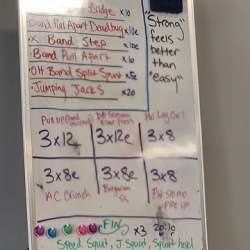 Bridge x10
Band Pull Apart Deadbug x10e
X Band Step x10e
Band Pull Apart x10
OH Band Split Squat x5e
Jumping Jacks x20
"Strong"
feels
better
than
"easy"
3x12 3x12e 3x8
3x8e 3x8e 3x8
AC Crunch Bulgarian
SS
x3
Speed Squat, J Squat, Squat hold